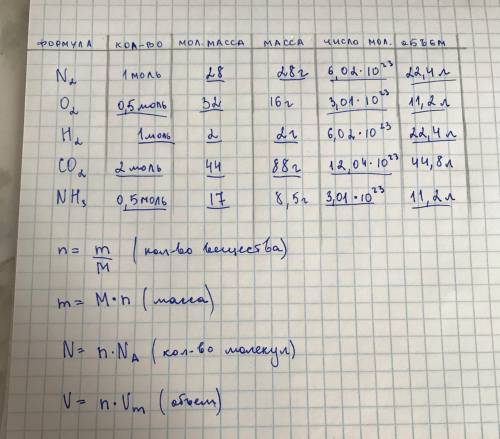 ФОРМУЛА КОЛ-ВО МОЛ. МАССА МАССА ЧИСЛО МОЛ. ОБЪЕМ
N₂ 1 моль 28 28 г 6,02·10²³ 22,4 л
O₂ 0,5 моль 32 16 г 3,01·10²³ 11,2 л
H₂ 1 моль 2 2 г 6,02·10²³ 22,4 л
CO₂ 2 моль 44 88 г 12,04·10²³ 44,8 л
NH₃ 0,5 моль 17 8,5 г 3,01·10²³ 11,2 л
n = m/M (кол-во вещества)
m = M·n (масса)
N = n·N_A (кол-во молекул)
V = n·V_m (объем)